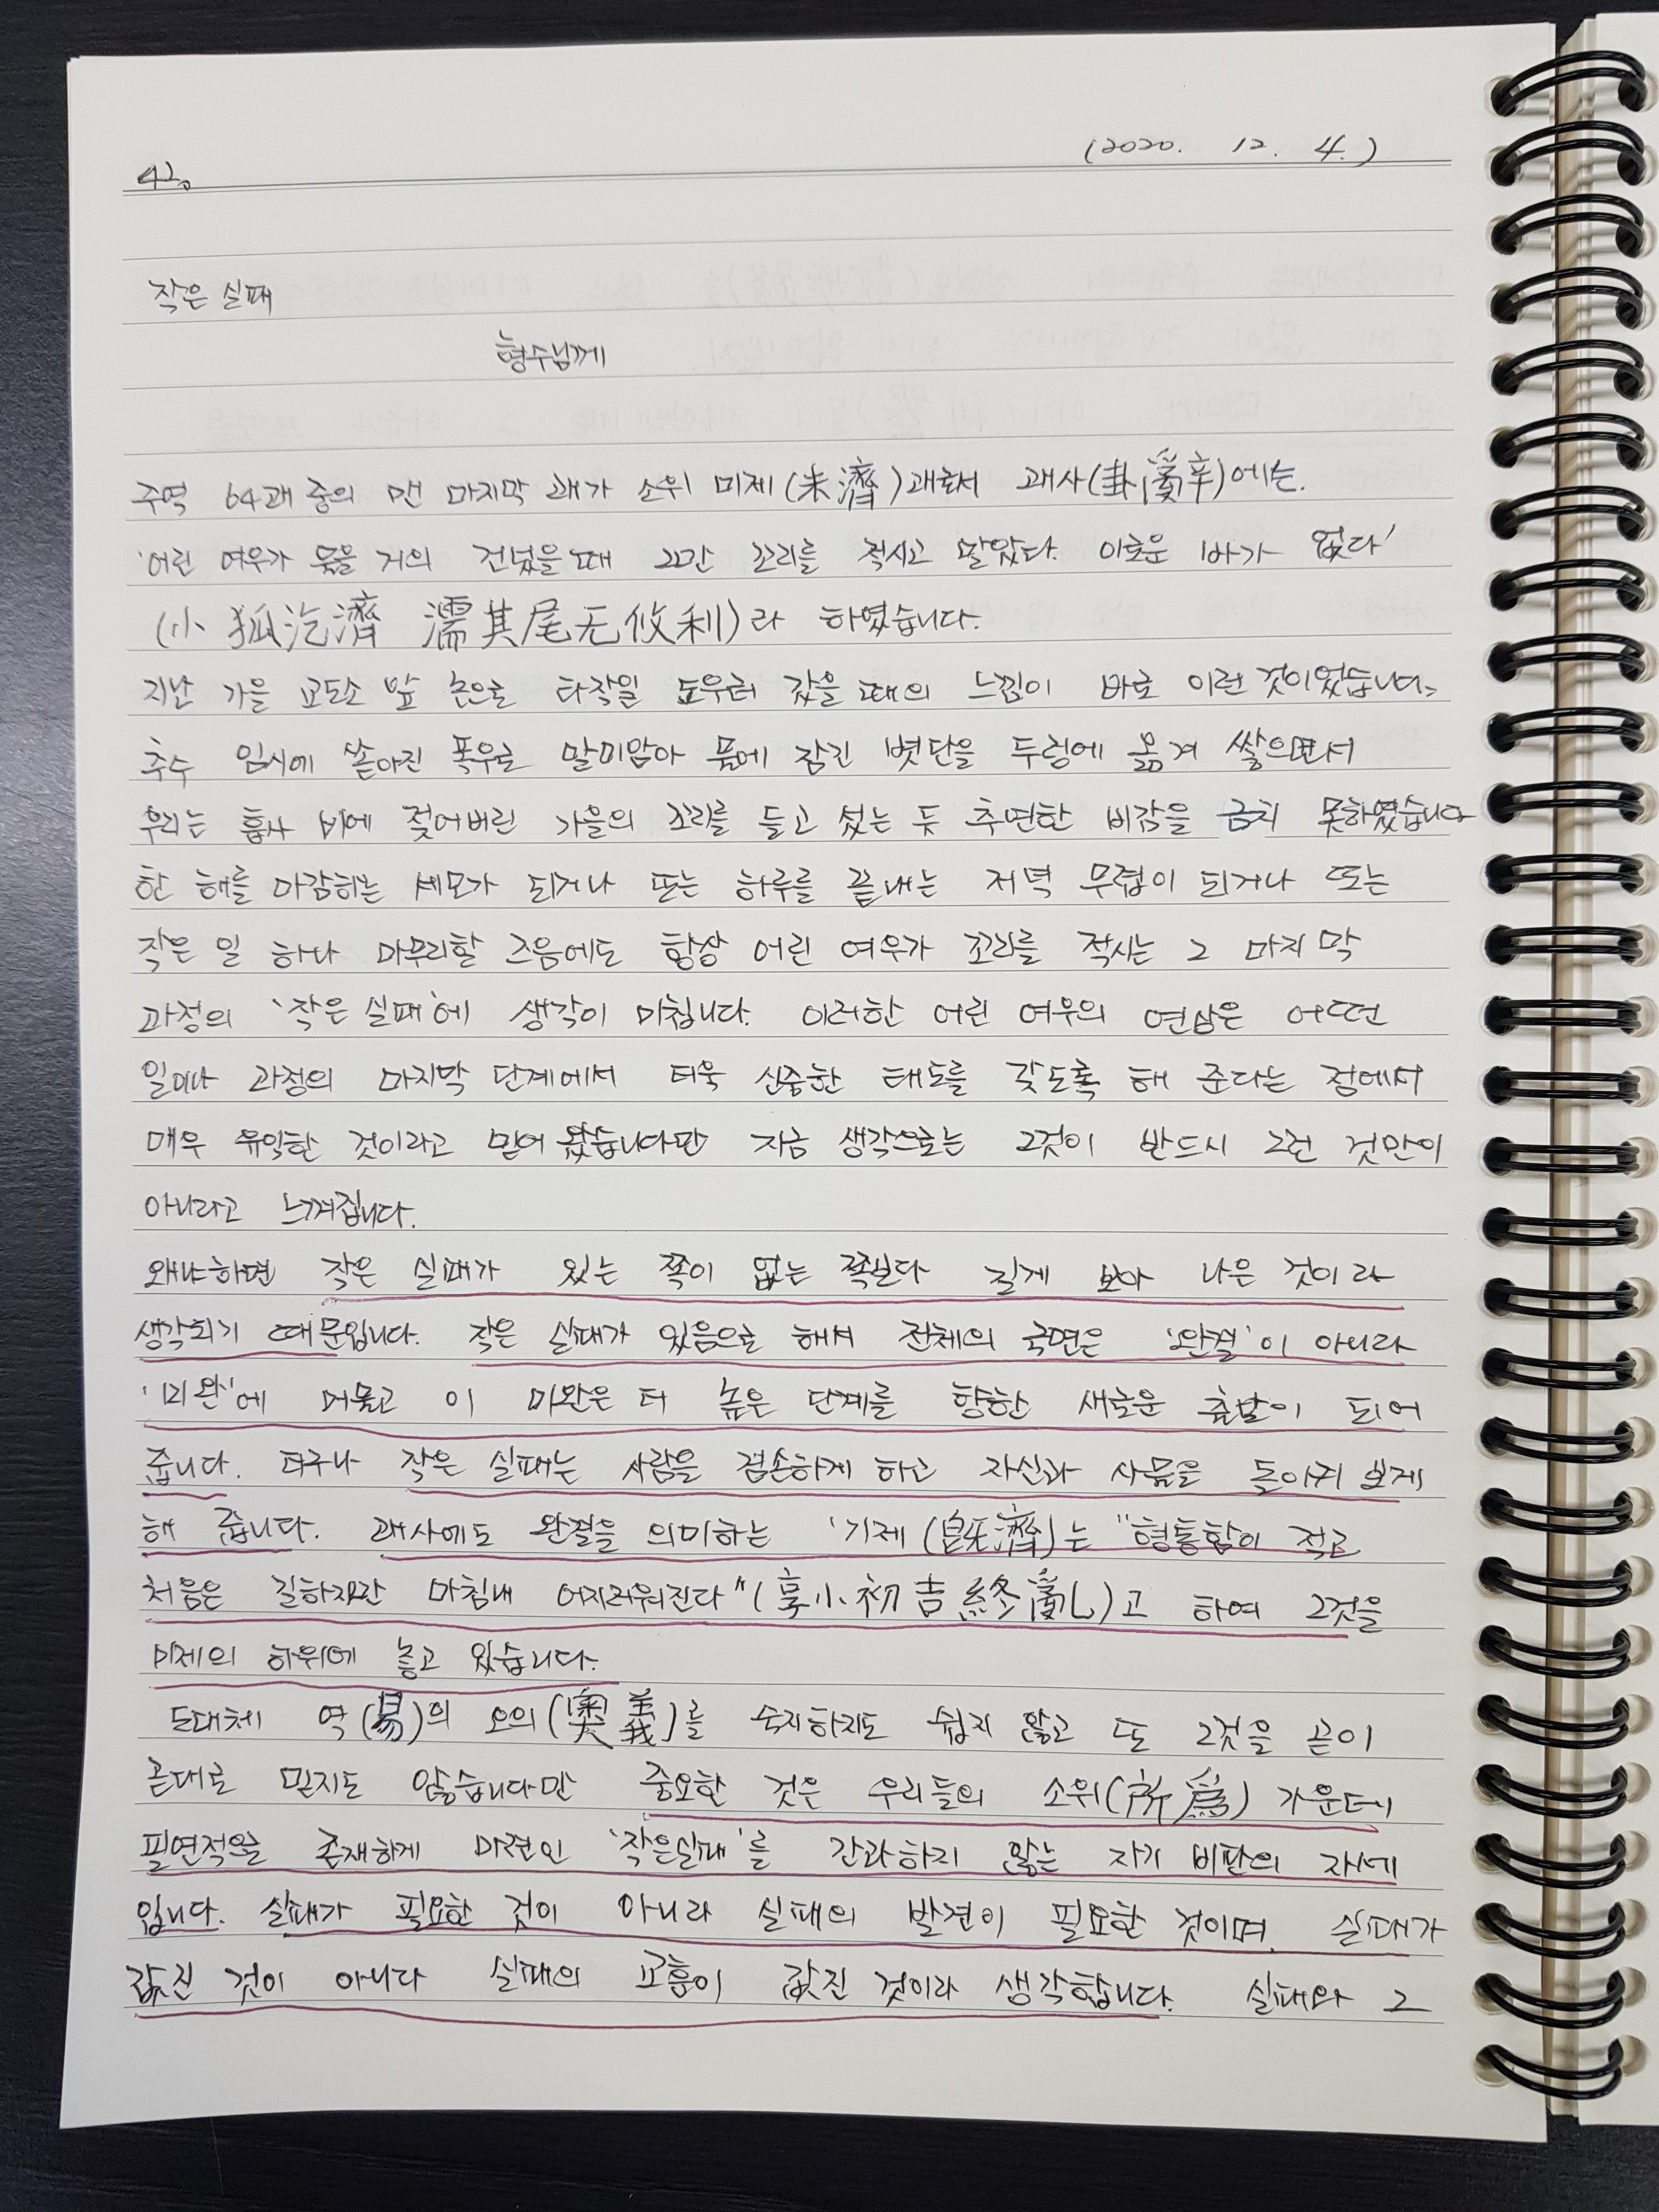 42. (2020. 12. 4.)
작은 실패
형수님께
주역 64괘 중의 맨 마지막 괘가 소위 미제(未濟)괘로서 괘사(卦辭)에는.
'어린 여우가 물을 거의 건넜을 때 그만 꼬리를 적시고 말았다. 이로운 바가 없다'
(小狐汔濟 濡其尾无攸利)라 하였습니다.
지난 가을 교도소 앞 논으로 타작일 도우러 갔을 때의 느낌이 바로 이런 것이었습니다.
추수 임시에 쏟아진 폭우로 말미암아 물에 잠긴 볏단을 두렁에 옮겨 쌓으면서
우리는 흡사 비에 젖어버린 가을의 꼬리를 들고 섰는 듯 추연한 비감을 금치 못하였습니다
한 해를 마감하는 세모가 되거나 또는 하루를 끝내는 저녁 무렵이 되거나 또는
작은 일 하나 마무리할 즈음에도 항상 어린 여우가 꼬리를 적시는 그 마지막
과정의 '작은 실패'에 생각이 미칩니다. 이러한 어린 여우의 연상은 어떤
일이나 과정의 마지막 단계에서 더욱 신중한 태도를 갖도록 해 준다는 점에서
매우 유익한 것이라고 믿어 왔습니다만 지금 생각으로는 그것이 반드시 그런 것만이
아니라고 느껴집니다.
왜냐하면 작은 실패가 있는 쪽이 없는 쪽보다 길게 보아 나은 것이라
생각되기 때문입니다. 작은 실패가 있음으로 해서 전체의 국면은 '완결'이 아니라
'미완'에 머물고 이 미완은 더 높은 단계를 향한 새로운 출발이 되어
줍니다. 더구나 작은 실패는 사람을 겸손하게 하고 자신과 사물을 돌아켜 보게
해 줍니다. 괘사에도 완결을 의미하는 '기제(旣濟)는 "형통함이 적고
처음은 길하지만 마침내 어지러워진다"(享小初吉終亂)고 하여 그것을
미제의 하위에 놓고 있습니다.
도대체 역(易)의 오의(奧義)를 숙지하지도 쉽지 않고 또 그것을 곧이
곧대로 믿지도 않습니다만 중요한 것은 우리들의 소위(所爲) 가운데
필연적으로 존재하게 마련인 '작은실패'를 간과하지 않는 자기 비판의 자세
입니다. 실패가 필요한 것이 아니라 실패의 발견이 필요한 것이며, 실패가
값진 것이 아니다 실패의 교훈이 값진 것이라 생각합니다. 실패와 그